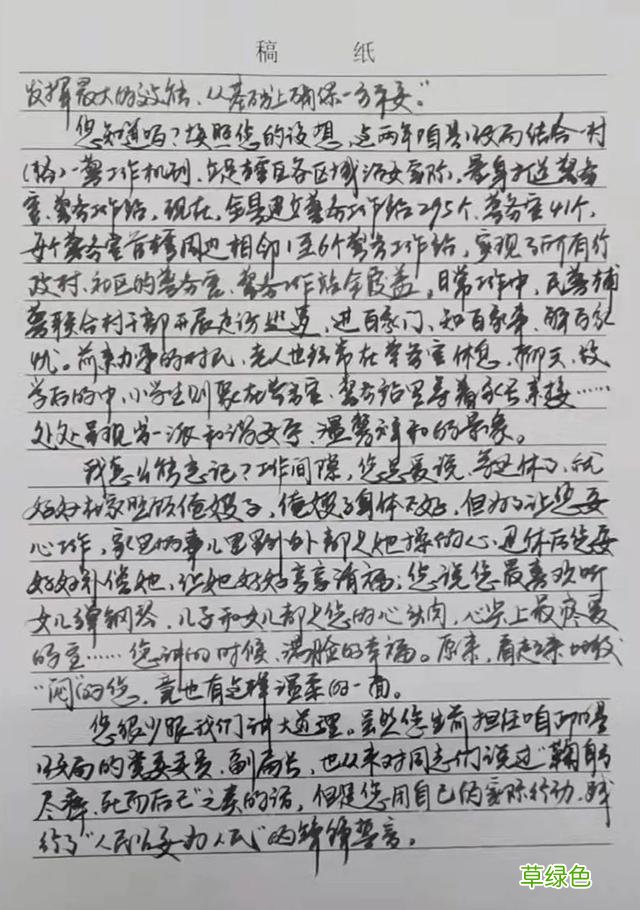 稿 纸
发挥最大的效能、从基础上确保一方平安。”
您知道吗？按照您的设想，这两年咱县公安局结合一村
(格)一警工作机制、立足辖区各区域治安实际，量身打造警务
室、警务工作站，现在，全县建立警务工作站295个、警务室41个，
每个警务室管辖周边相邻1至6个警务工作站，实现了所有行
政村、社区的警务室、警务工作站全覆盖。日常工作中，民警辅
警联合村干部开展走访巡逻，进百家门、知百家事、解百家
忧。前来办事的村民，老人也经常在警务室休息，聊天，放
学后的中、小学生则聚在警务室、警务站里等着家长来接……
处处呈现出一派和谐安宁、温馨祥和的景象。
我怎么能忘记？工作间隙，您总爱说，等退休了，就
好好在家照顾俺嫂子，俺嫂子身体不好，但为了让您安
心工作，家里的事儿里里外外都是她操的心，退休后您要
好好补偿她，让她好好享享清福；您说您最喜欢听
女儿弹钢琴，儿子和女儿都是您的心头肉，心尖上最疼爱
的宝……您讲的时候，满脸的幸福。原来，看起来
的您，竟也有这样温柔的一面。
您很少跟我们讲大道理。虽然您生前担任咱县
公安局的党委委员、副局长，也从未对同志们说过“鞠躬
尽瘁，死而后已”之类的话，但是您用自己的实际行动，践
行了“人民公安为人民”的铮铮誓言。
草绿色